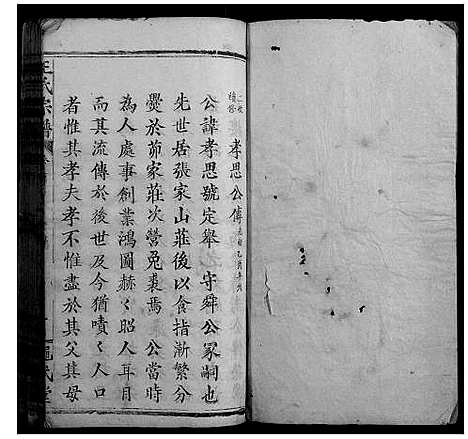 二甲
續修
孝思公傳
公諱孝思號定舉 守舜公冢嗣也
先世居張家山莊後以食指漸繁分
爨於茆家莊次營兔裘焉 公當時
為人處事創業鴻圖赫〻昭人耳目
而其流傳於後世及今猶嘖〻人口
者惟其孝夫孝不惟盡於其父其母
王氏宗譜